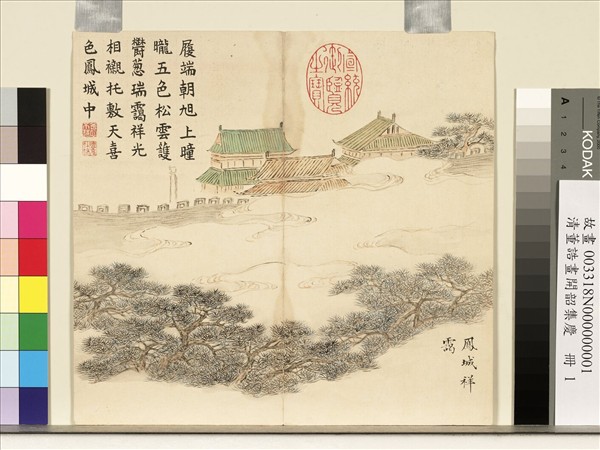 履端朝旭上曈
曨五色松雲護
鬱蔥瑞靄祥光
相襯托敷天喜
色鳳城中
宣統
御覽
之寶
鳳城祥
靄
A 1 2 3 4
KODAK
故畫 003318N000000001
清董誥畫開韶集慶 冊 1